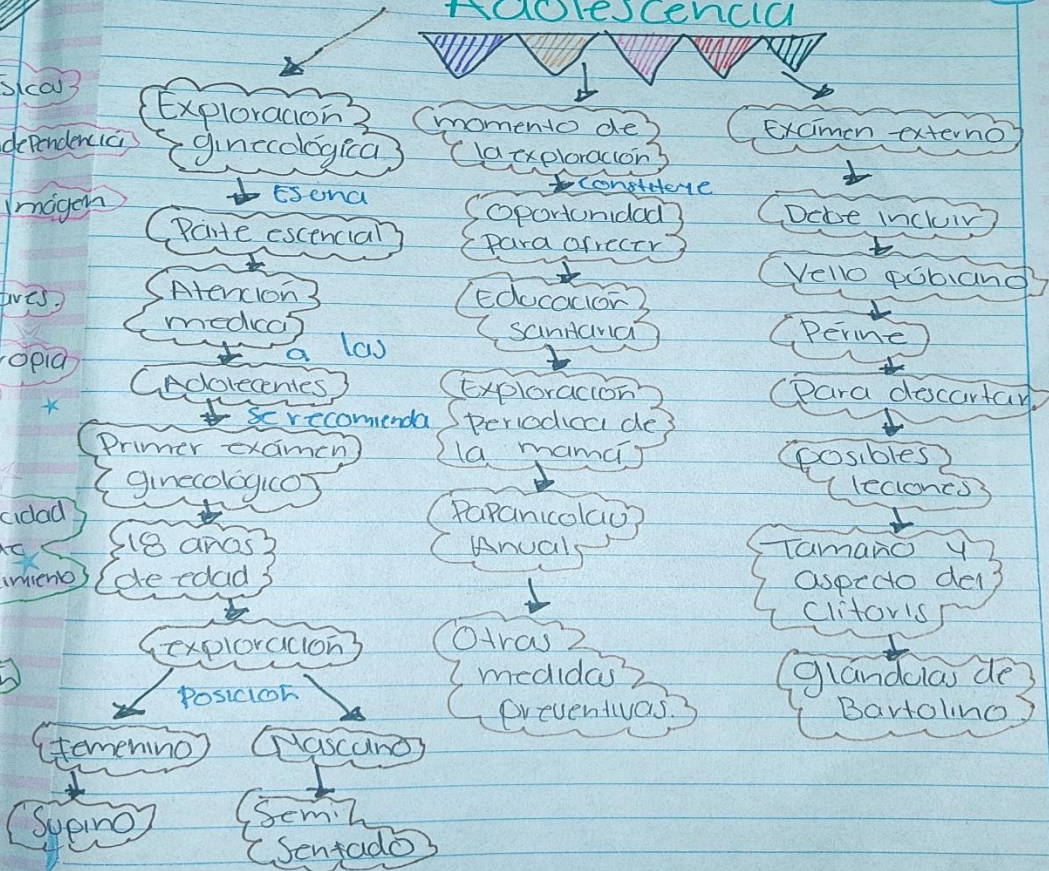 Adolescencia
sicas
dependencia
Imagen
ares.
ropia
cidad
imiento
Exploración
ginecológica
Es una
Parte escencial
Atención
medica
a las
Adolecentes
Se recomienda
Primer exámen
ginecológico
18 años
de edad
exploración
Posición
femenino
Masculino
Supino
Semi
Sentado
momento de
la exploración
Constituye
Oportunidad
para ofrecer
Educación
sanitaria
Exploración
Periodica de
la mama
Papanicolao
Anual
Otras
medidas
preventivas.
Exámen externo
Debe incluir
Vello púbiano
Perine
Para descartar
posibles
leciones
Tamaño y
aspecto del
Clitoris
glándulas de
Bartolino